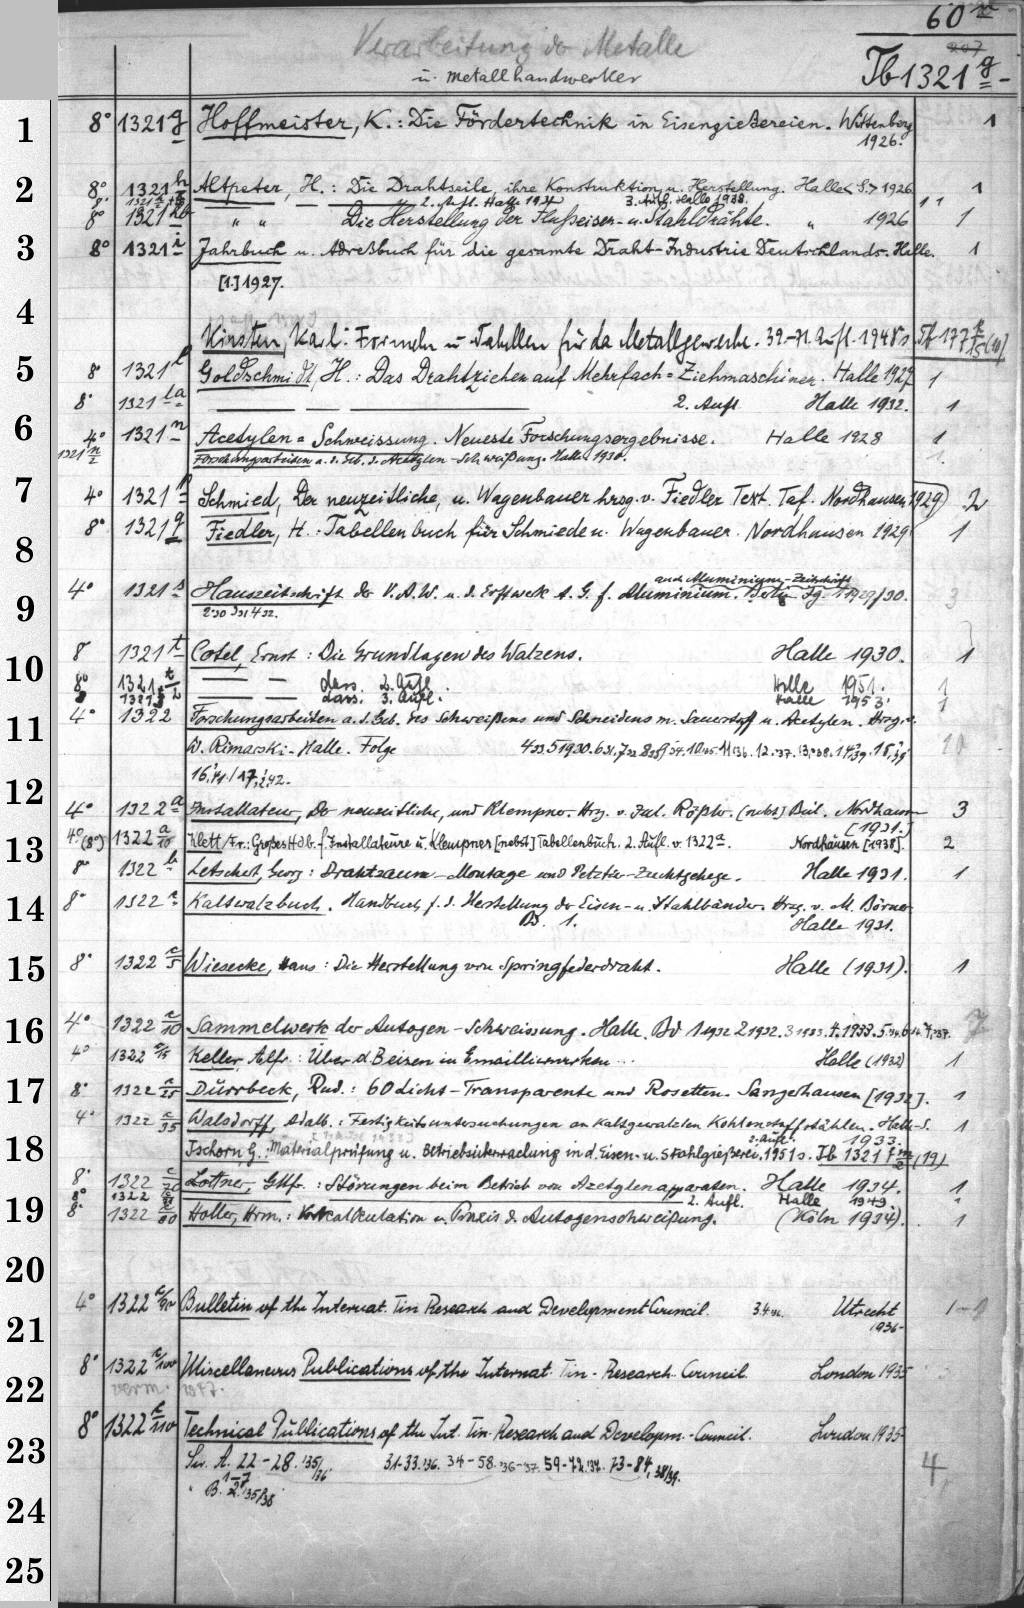 60 v
Verarbeitung der Metalle
207
u. Metallhandwerker
Tb 1321 g -
1
8° 1321 g Hoffmeister, K.: Die Fördertechnik in Eisengießereien. Wittenberg 1
1926.
2
8° 1321 h Altpeter, H.: Die Drahtseile, ihre Konstruktion u. Herstellung. Halle <S.> 1926 1
2. Aufl. Halle 1934 3. Aufl. Halle 1938. 1 1
8° 1321 hb " " Die Herstellung der Flußeisen- u. Stahldrähte. " 1926 1
3
8° 1321 i Jahrbuch u. Adreßbuch für die gesamte Draht-Industrie Deutschlands. Halle. 1
[1.] 1927.
4
Kirsten, Karl: Formeln u. Tabellen für da Metallgewerbe. 39.-71. Aufl. 1948 s. Tb 177
5
8° 1321 l Goldschmidt, H.: Das Drahtziehen auf Mehrfach=Ziehmaschinen. Halle 1927 1
8° 1321 la 2. Aufl. Halle 1932. 1
6
4° 1321 n Acetylen=Schweissung. Neueste Forschungsergebnisse. Halle 1928 1
1321 n/2 Forschungsarbeiten a. d. Geb. d. Acetylen-Schweißung. Halle 1930. 1.
7
4° 1321 p Schmied, Der neuzeitliche, u. Wagenbauer hrsg. v. Fiedler Text. Taf. Nordhausen 1929) 2
8° 1321 q Fiedler, H.: Tabellenbuch für Schmiede u. Wagenbauer. Nordhausen 1929 1
8
auch Aluminium-Zeitschrift
4° 1321 s Hauszeitschrift der V.A.W. u. d. Erftwerk A.G. f. Aluminium. Berlin Jg. 1 1929/30. 3
9
2.30 3.31 4.32.
8° 1321 t Cotel, Ernst: Die Grundlagen des Walzens. Halle 1930. 1
10
8° 1321 t/2 dass. 2. Aufl. Halle 1951. 1
8° 1321 dass. 3. Aufl. Halle 1953. 1
4° 1322 Forschungsarbeiten a. d. Geb. des Schweißens und Schneidens m. Sauerstoff u. Azetylen. Hrsg. v.
11
W. Rimarski-Halle. Folge 4.33. 5 1930. 6 31. 7 32 8 33 9 '34. 10 '35. 11 '36. 12. '37. 13. '38. 14 '39. 15 '39 10
16 '41 / 17, '42.
12
4° 1322 a Installateur, Der neuzeitliche, und Klempner. Hrg. v. Jul. Rößler. (nebst) Beil. Nordhausen 3
[1931.]
4° (8°) 1322 a/10 Klett, Fr.: Großes Hdb. f. Installateure u. Klempner [nebst] Tabellenbuch. 2. Aufl. v. 1322 a. Nordhausen [1938]. 2
13
8° 1322 b Letschert, Georg: Drahtzaun-Montage und Pelztier-Zuchtgehege. Halle 1931. 1
8° 1322 c Kaltwalzbuch. Handbuch f. d. Herstellung der Eisen- u. Stahlbänder. Hrsg. v. M. Börner
14
Bd. 1. Halle 1931.
15
8° 1322 c/5 Wiesecke, Hans: Die Herstellung von Springfederdraht. Halle (1931). 1
16
4° 1322 c/10 Sammelwerk der Autogen-Schweissung. Halle. Bd 1 1932 2 1932. 3 1933. 4. 1933. 5. '34. 6 '34. 7, '37. 7
4° 1322 c/15 Keller, Alfr.: Über d. Beizen in Emaillierwerken ... Halle (1932) 1
17
8° 1322 c/25 Dürrbeck, Rud.: 60 Licht-Transparente und Rosetten. Sangerhausen [1932]. 1
4° 1322 c/35 Walsdorff, Adalb.: Festigkeitsuntersuchungen an kaltgewalzten Kohlenstoffstählen. Halle-S. 1
1933.
2. Aufl.
18
Tschorn G.: Materialprüfung u. Betriebsüberwachung in d. Eisen- u. Stahlgießerei. 1951 s. Tb 1321 7 m/2 (19)
8° 1322 c Lottner, Gttfr.: Störungen beim Betrieb von Azetylenapparaten. Halle 1934. 1
8° 1322 2. Aufl. Halle 1943. 1
19
8° 1322 c/80 Holler, Hrm.: Vorkalkulation u. Praxis d. Autogenschweißung. (Köln 1934). 1
20
4° 1322 c/90 Bulletin of the Internat. Tin Research and Development Council. 3.4 '36. Utrecht 1
1936-
21
8° 1322 c/100 Miscellaneous Publications of the Internat. Tin-Research-Council. London 1935
22
verm.
8° 1322 c/110 Technical Publications of the Int. Tin-Research and Developm.-Council. London 1935-
23
Ser. A. 22-28. '35/36 31-33. '36. 34-58. '36-37. 59-72. '37. 73-84, '38/39. 4
1-7
" B. 2. '35/38
24
25